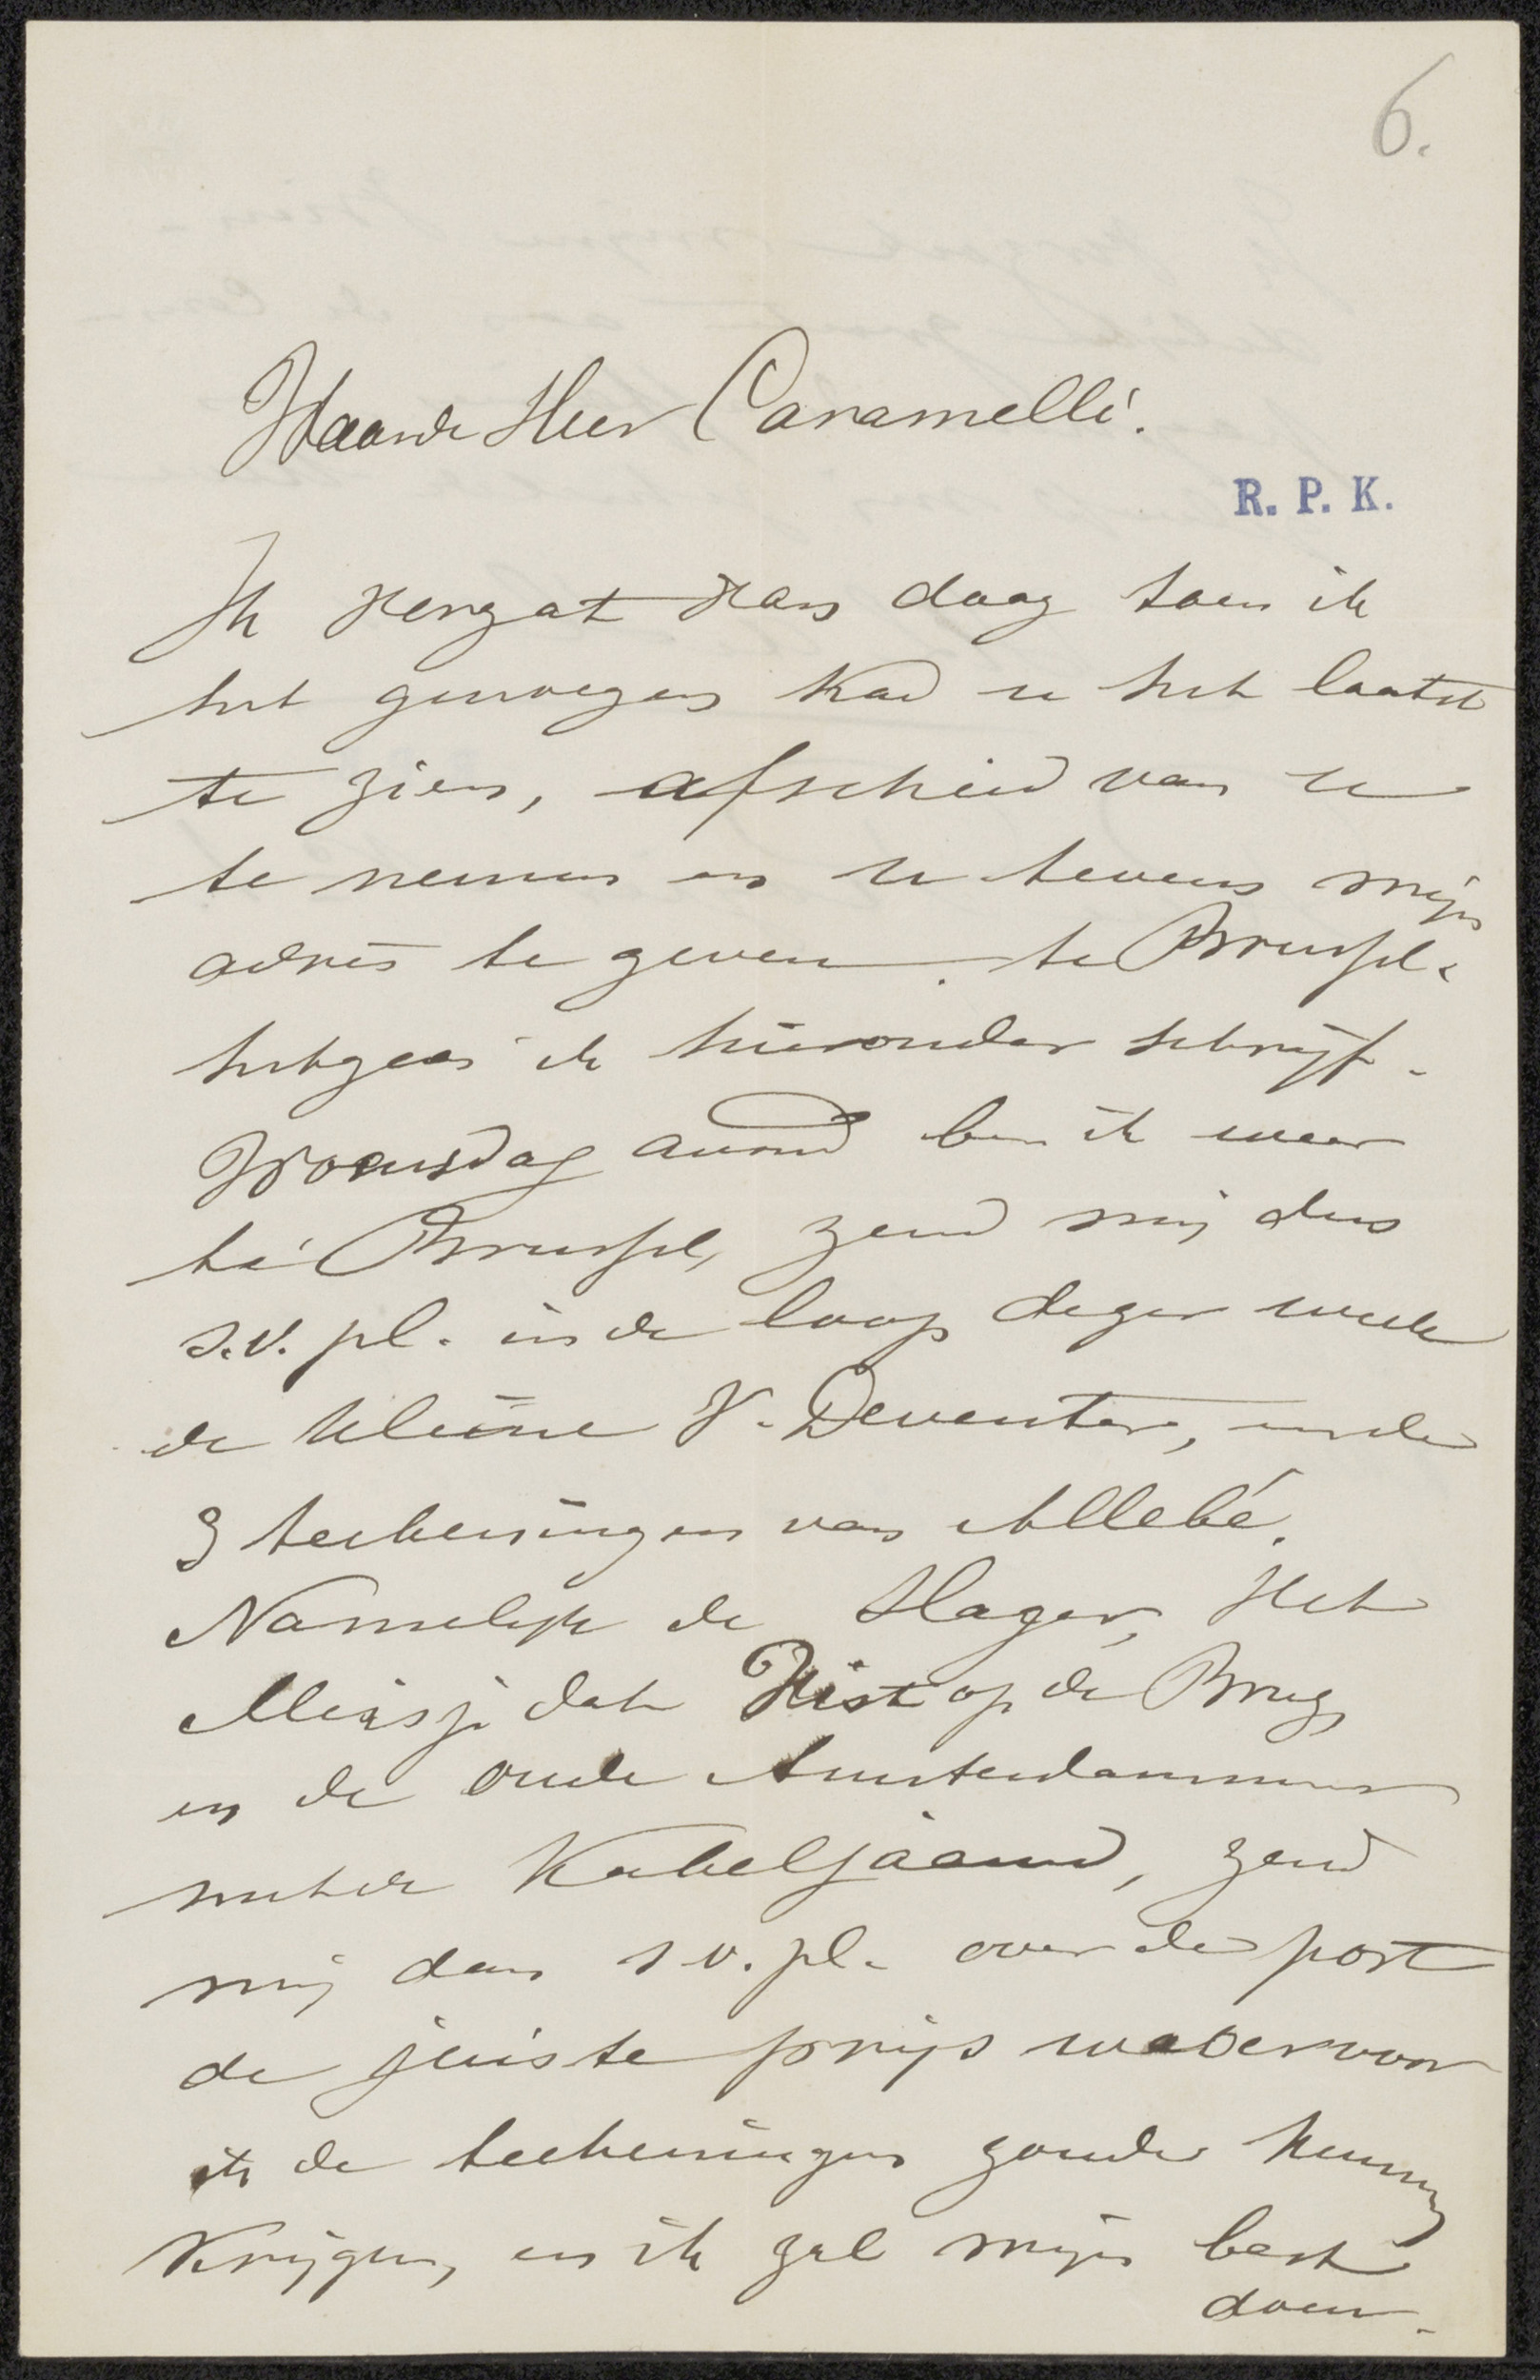 6.
Waarde Heer Caramelli.
R. P. K.
Ik vergat van daag toen ik
het genoegen had u het laatst
te zien, afscheid van u
te nemen en u tevens mijn
adres te geven te Brussel.
hetgeen ik hieronder schrijf.
Woensdag avond ben ik weer
te Brussel, zend mij dus
s.v. pl. in de loop dezer week
de kleine V. Deventer, en de
3 teekeningen van Allebé.
Namelijk de Slager, Het
Meisje dat Vist op de Brug,
en de oude Amsterdammer
met de Kabeljaauw, zend
mij dan s v. pl. over de post
de juiste prijs waarvoor
ik de teekeningen zoude kunnen
krijgen, en ik zal mijn best
doen.